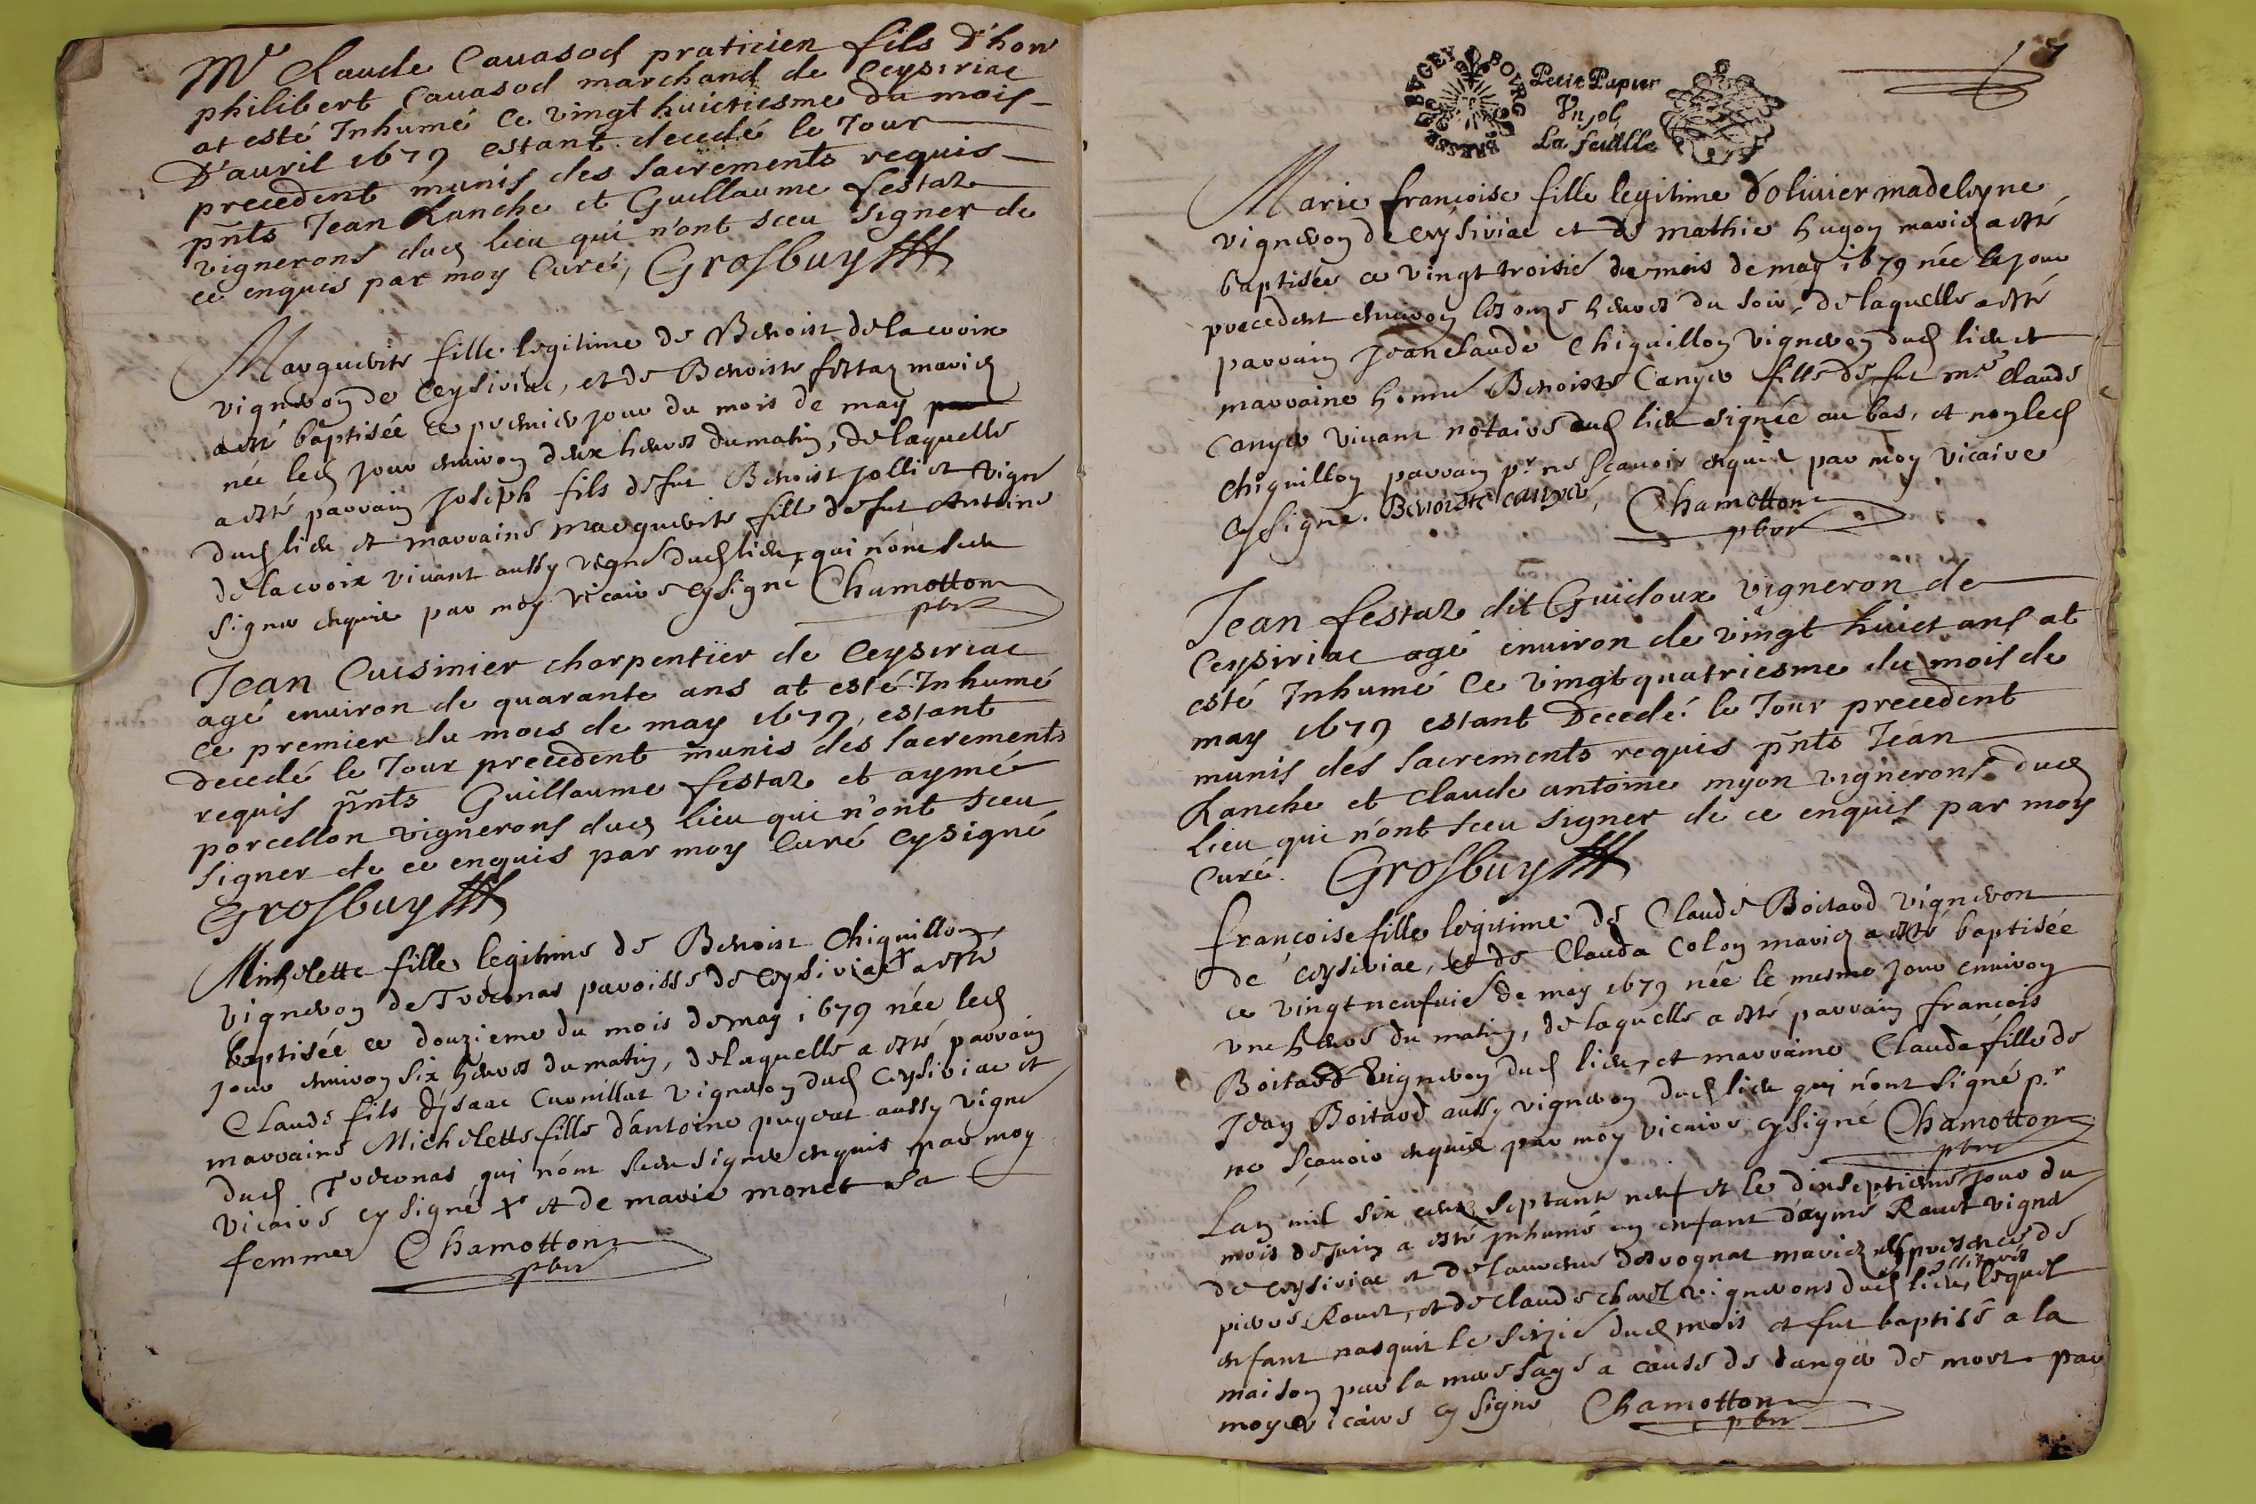 Mr Claude Cauasod praticien fils d'hon
philibert Cauasod marchand de Ceysiriac
at esté Inhumé Ce vingt huictiesme du mois
D'auril 1679 estant decedé le Jour
precedent munis des sacrements requis
pnts Jean Lanche et Guillaume festaz
vignerons dud lieu qui n'ont sceu signer de
ce enquis par moy Curé, Grosbuy
Marguerite fille legitime de Benoist delacroix
vigneron de Ceysiriac, et de Benoiste festaz mariez
a esté baptisée ce premier jour du mois de may
née led jour enuiron deux heures du matin, de laquelle
a esté parrain Joseph fils de fut Benoist Jolliet vigne
dud lieu et marraine marguerite fille de fut Antoine
delacroix viuant aussy vigne dud lieu, qui n'ont sceu
signer enquis par moy vicaire cy signé Chamotton
pbre
Jean Cuisinier charpentier de Ceysiriac
agé enuiron de quarante ans at esté Inhumé
ce premier du mois de may 1679, estant
decedé le Jour precedent munis des sacrements
requis pnts Guillaume festaz et aymé
porcellon vignerons dud lieu qui n'ont sceu
signer de ce enquis par moy Curé Cysigné
Grosbuy
Michelette fille legitime de Benoist Chiquillon
vigneron de Treconas paroisse de Ceysiriac x a esté
baptisée ce douzieme du mois de may 1679 née led
jour enuiron six heures du matin, de laquelle a esté parrain
Claude fils d'ysaac Curnillat vigneron dud Ceysiriac et
marraine Michelette fille d'antoine pugeat aussy vigne
dud Treconas, qui n'ont sceu signer enquis par moy
vicaire cy signé x et de marie monet sa
femme Chamotton
pbre
7
BRESSE BVGEY BOVRG
Petit Papier
Vn sol
La feuille
Marie françoise fille legitime d'oliuier madeleyne
vigneron de Ceysiriac et de mathie hugon mariez a esté
baptisée ce vingt troisie du mois de may 1679 née le jour
precedent enuiron les onze heures du soir, de laquelle a esté
parrain Jean claude Chiquillon vigneron dud lieu et
marraine honne Benoiste Canyer fille de fut mre Claude
Canyer viuant notaire dud lieu signée au bas, et non led
Chiquillon parrain pr ne scauoir enquis par moy vicaire
cy signé. Benoiste canyer, Chamotton
pbre
Jean festaz dit Guidoux vigneron de
Ceysiriac agé enuiron de vingt huict ans at
esté Inhumé Ce vingtquatriesme du mois de
may 1679 estant Decedé le Jour precedent
munis des sacrements requis pnts Jean
Lanche et Claude antoine myon vignerons dud
lieu qui n'ont sceu signer de ce enquis par moy
Curé. Grosbuy
françoise fille legitime de Claude Boitard vigneron
de Ceysiriac, et de Clauda Colon mariez a esté baptisée
ce vingt neufuie de may 1679 née le mesme jour enuiron
vne heure du matin, de laquelle a esté parrain françois
Boitard vigneron dud lieu, et marraine Clauda fille de
Jean Boitard aussy vigneron dud lieu qui n'ont signé pr
ne scauoir enquis par moy vicaire cysigné Chamotton
pbre
Lan mil six cent septante neuf et le dixseptieme jour du
mois de juin a esté inhumé un enfant d'aymé Rauet vigne
de Ceysiriac et de laurence desrognat mariez es presences de
pierre Rauet, et de Claude vignerons dud lieu, lequel
enfant nasquit le seizie dud mois et fut baptisé a la
maison par la mere sage a cause de danger de mort par
moy vicaire cy signé Chamotton
pbre